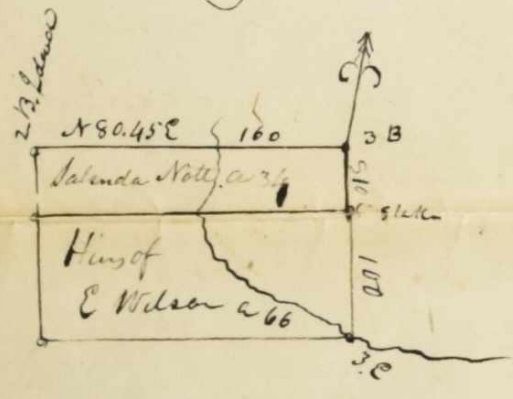 2 B.
N 80.45 E 160 3 B
Salenda Nott a 34
51
Stake
Heirs of
E Wilson a 66
100
3.E